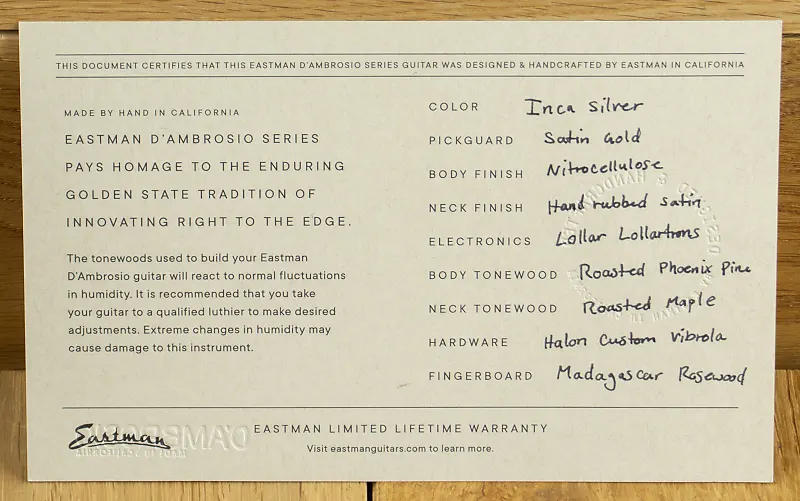 THIS DOCUMENT CERTIFIES THAT THIS EASTMAN D'AMBROSIO SERIES GUITAR WAS DESIGNED & HANDCRAFTED BY EASTMAN IN CALIFORNIA
MADE BY HAND IN CALIFORNIA
EASTMAN D'AMBROSIO SERIES
PAYS HOMAGE TO THE ENDURING
GOLDEN STATE TRADITION OF
INNOVATING RIGHT TO THE EDGE.
The tonewoods used to build your Eastman
D'Ambrosio guitar will react to normal fluctuations
in humidity. It is recommended that you take
your guitar to a qualified luthier to make desired
adjustments. Extreme changes in humidity may
cause damage to this instrument.
COLOR Inca Silver
PICKGUARD Satin Gold
BODY FINISH Nitrocellulose
NECK FINISH Hand rubbed satin
ELECTRONICS Lollar Lollartrons
BODY TONEWOOD Roasted Phoenix Pine
NECK TONEWOOD Roasted Maple
HARDWARE Halon Custom Vibrola
FINGERBOARD Madagascar Rosewood
Eastman
D'AMBROSIO
MADE IN CALIFORNIA
EASTMAN LIMITED LIFETIME WARRANTY
Visit eastmanguitars.com to learn more.